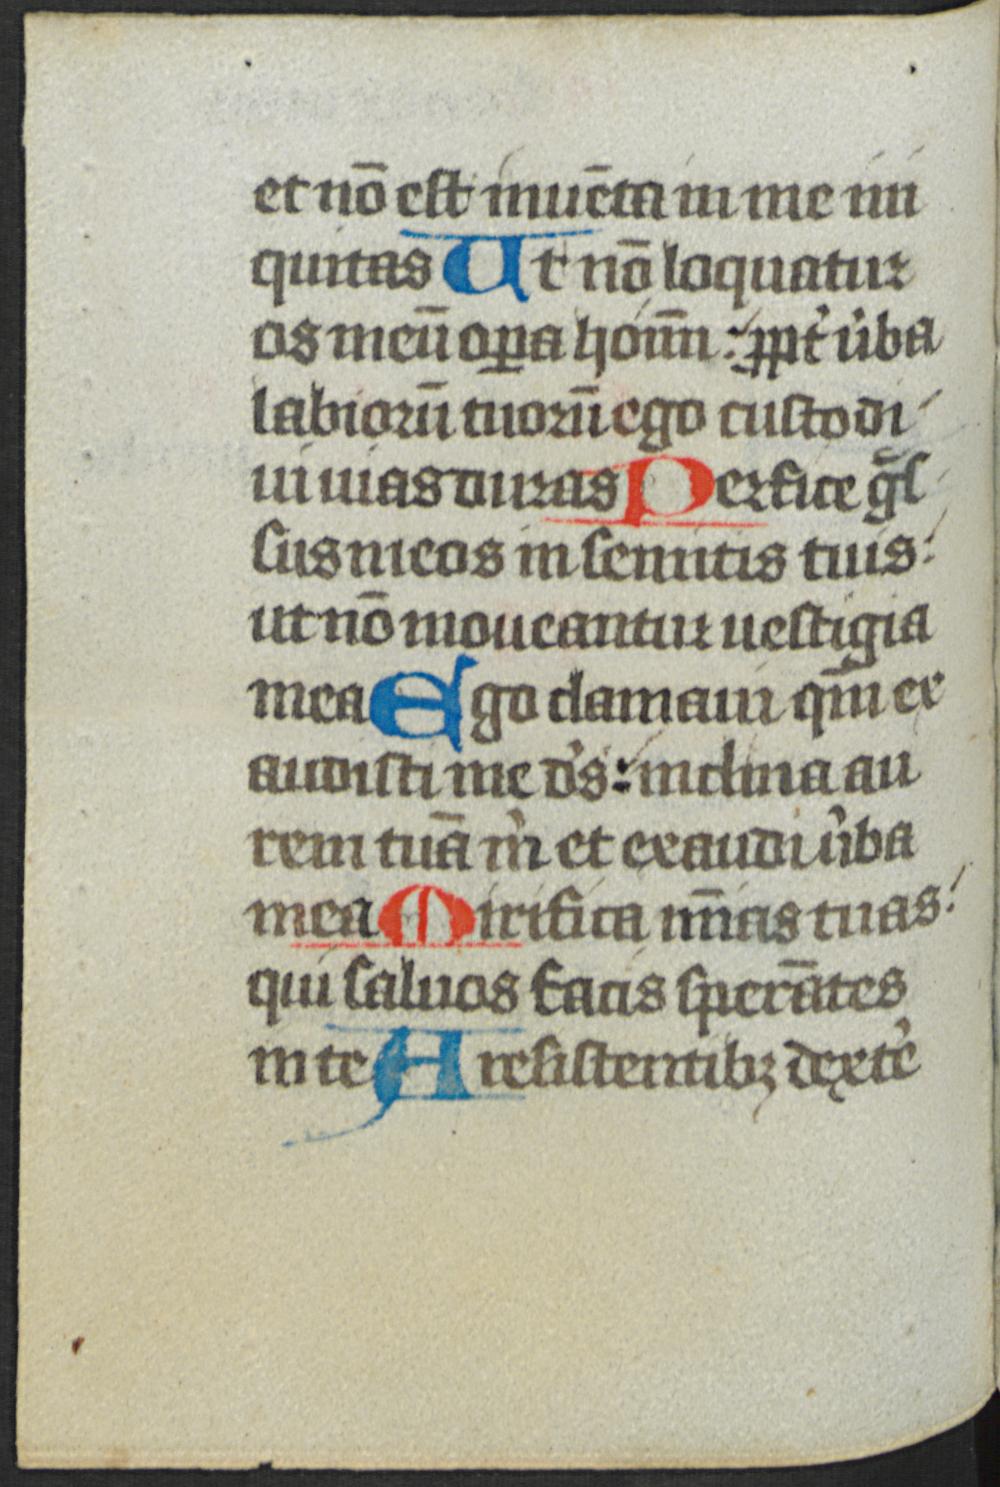 et nō est inuēta in me ini
quitas Ut nō loquatur
os meū opa hoīm: ppt̾ u̾ba
labiorū tuorū ego custodi
ui uias duras Perfice gͣs
sus meos in semitis tuis:
ut nō moueantur uestigia
mea Ego clamaui qm̄ ex
audisti me ds̾: inclina au
rem tuā m̾ et exaudi u̾ba
mea Mirifica mīas tuas:
qui saluos facis sperātes
in te A resistentibꝫ dexte̾